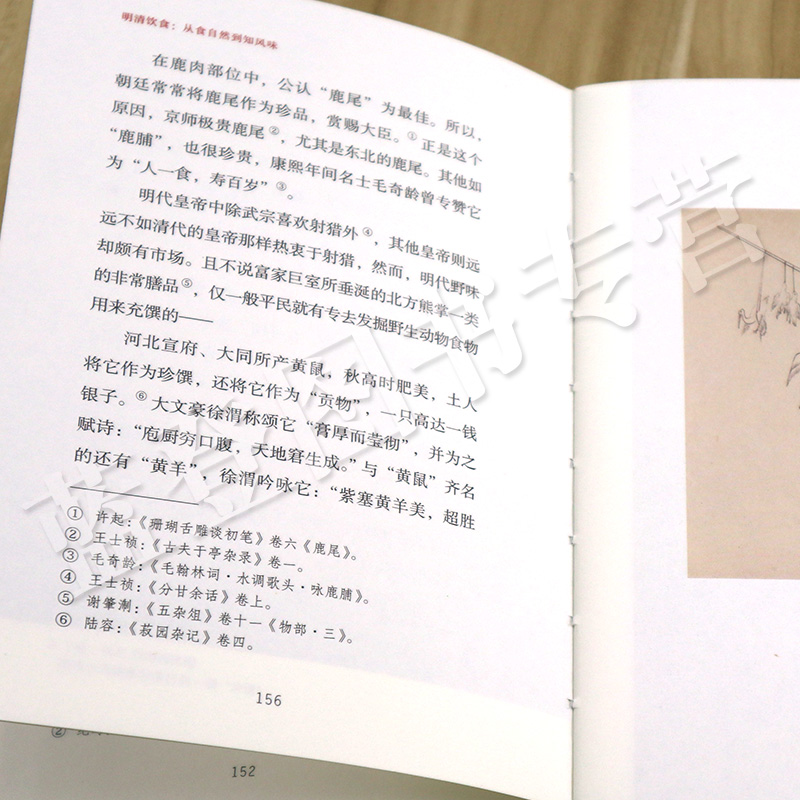 明清饮食：从食自然到知风味
在鹿肉部位中，公认“鹿尾”为最佳。所以，
朝廷常常将鹿尾作为珍品，赏赐大臣。①正是这个
原因，京师极贵鹿尾②，尤其是东北的鹿尾。其他如
“鹿脯”，也很珍贵，康熙年间名士毛奇龄曾专赞它
为“人一食，寿百岁”③。
明代皇帝中除武宗喜欢射猎外④，其他皇帝则远
远不如清代的皇帝那样热衷于射猎，然而，明代野味
却颇有市场。且不说富家巨室所垂涎的北方熊掌一类
的非常膳品⑤，仅一般平民就有专去发掘野生动物食物
用来充馔的——
河北宣府、大同所产黄鼠，秋高时肥美，土人
将它作为珍馔，还将它作为“贡物”，一只高达一钱
银子。⑥大文豪徐渭称颂它“膏厚而莹彻”，并为之
赋诗：“庖厨穷口腹，天地窘生成。”与“黄鼠”齐名
的还有“黄羊”，徐渭吟咏它：“紫塞黄羊美，超胜
① 许起：《珊瑚舌雕谈初笔》卷六《鹿尾》。
② 王士祯：《古夫于亭杂录》卷一。
③ 毛奇龄：《毛翰林词·水调歌头·咏鹿脯》。
④ 王士祯：《分甘余话》卷上。
⑤ 谢肇淛：《五杂俎》卷十一《物部·三》。
⑥ 陆容：《菽园杂记》卷四。
156
②
152
蓝登图书专营